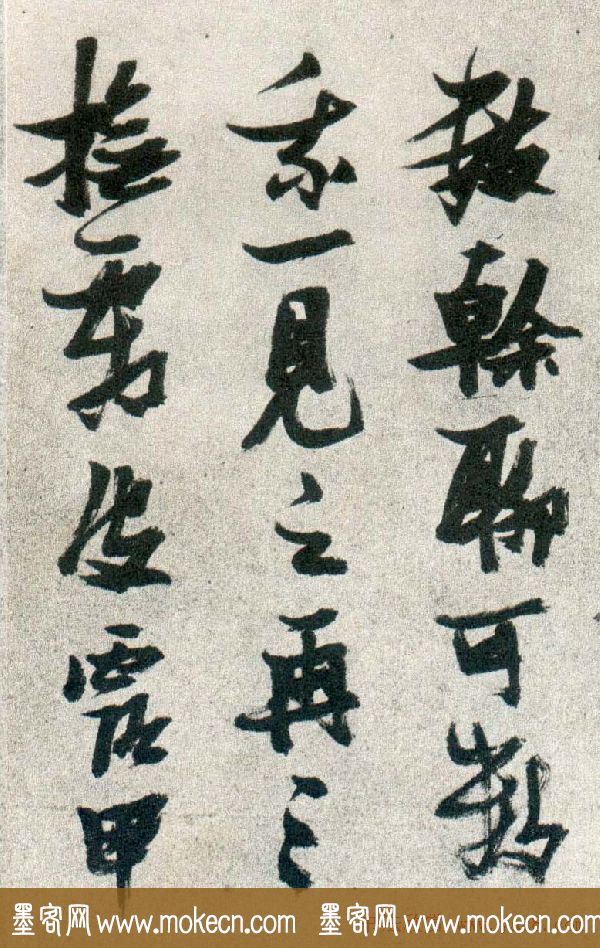 幹聊可數
我一見之再三
撫皮露甲
墨客网 www.mokecn.com 墨客网 www.mokecn.com